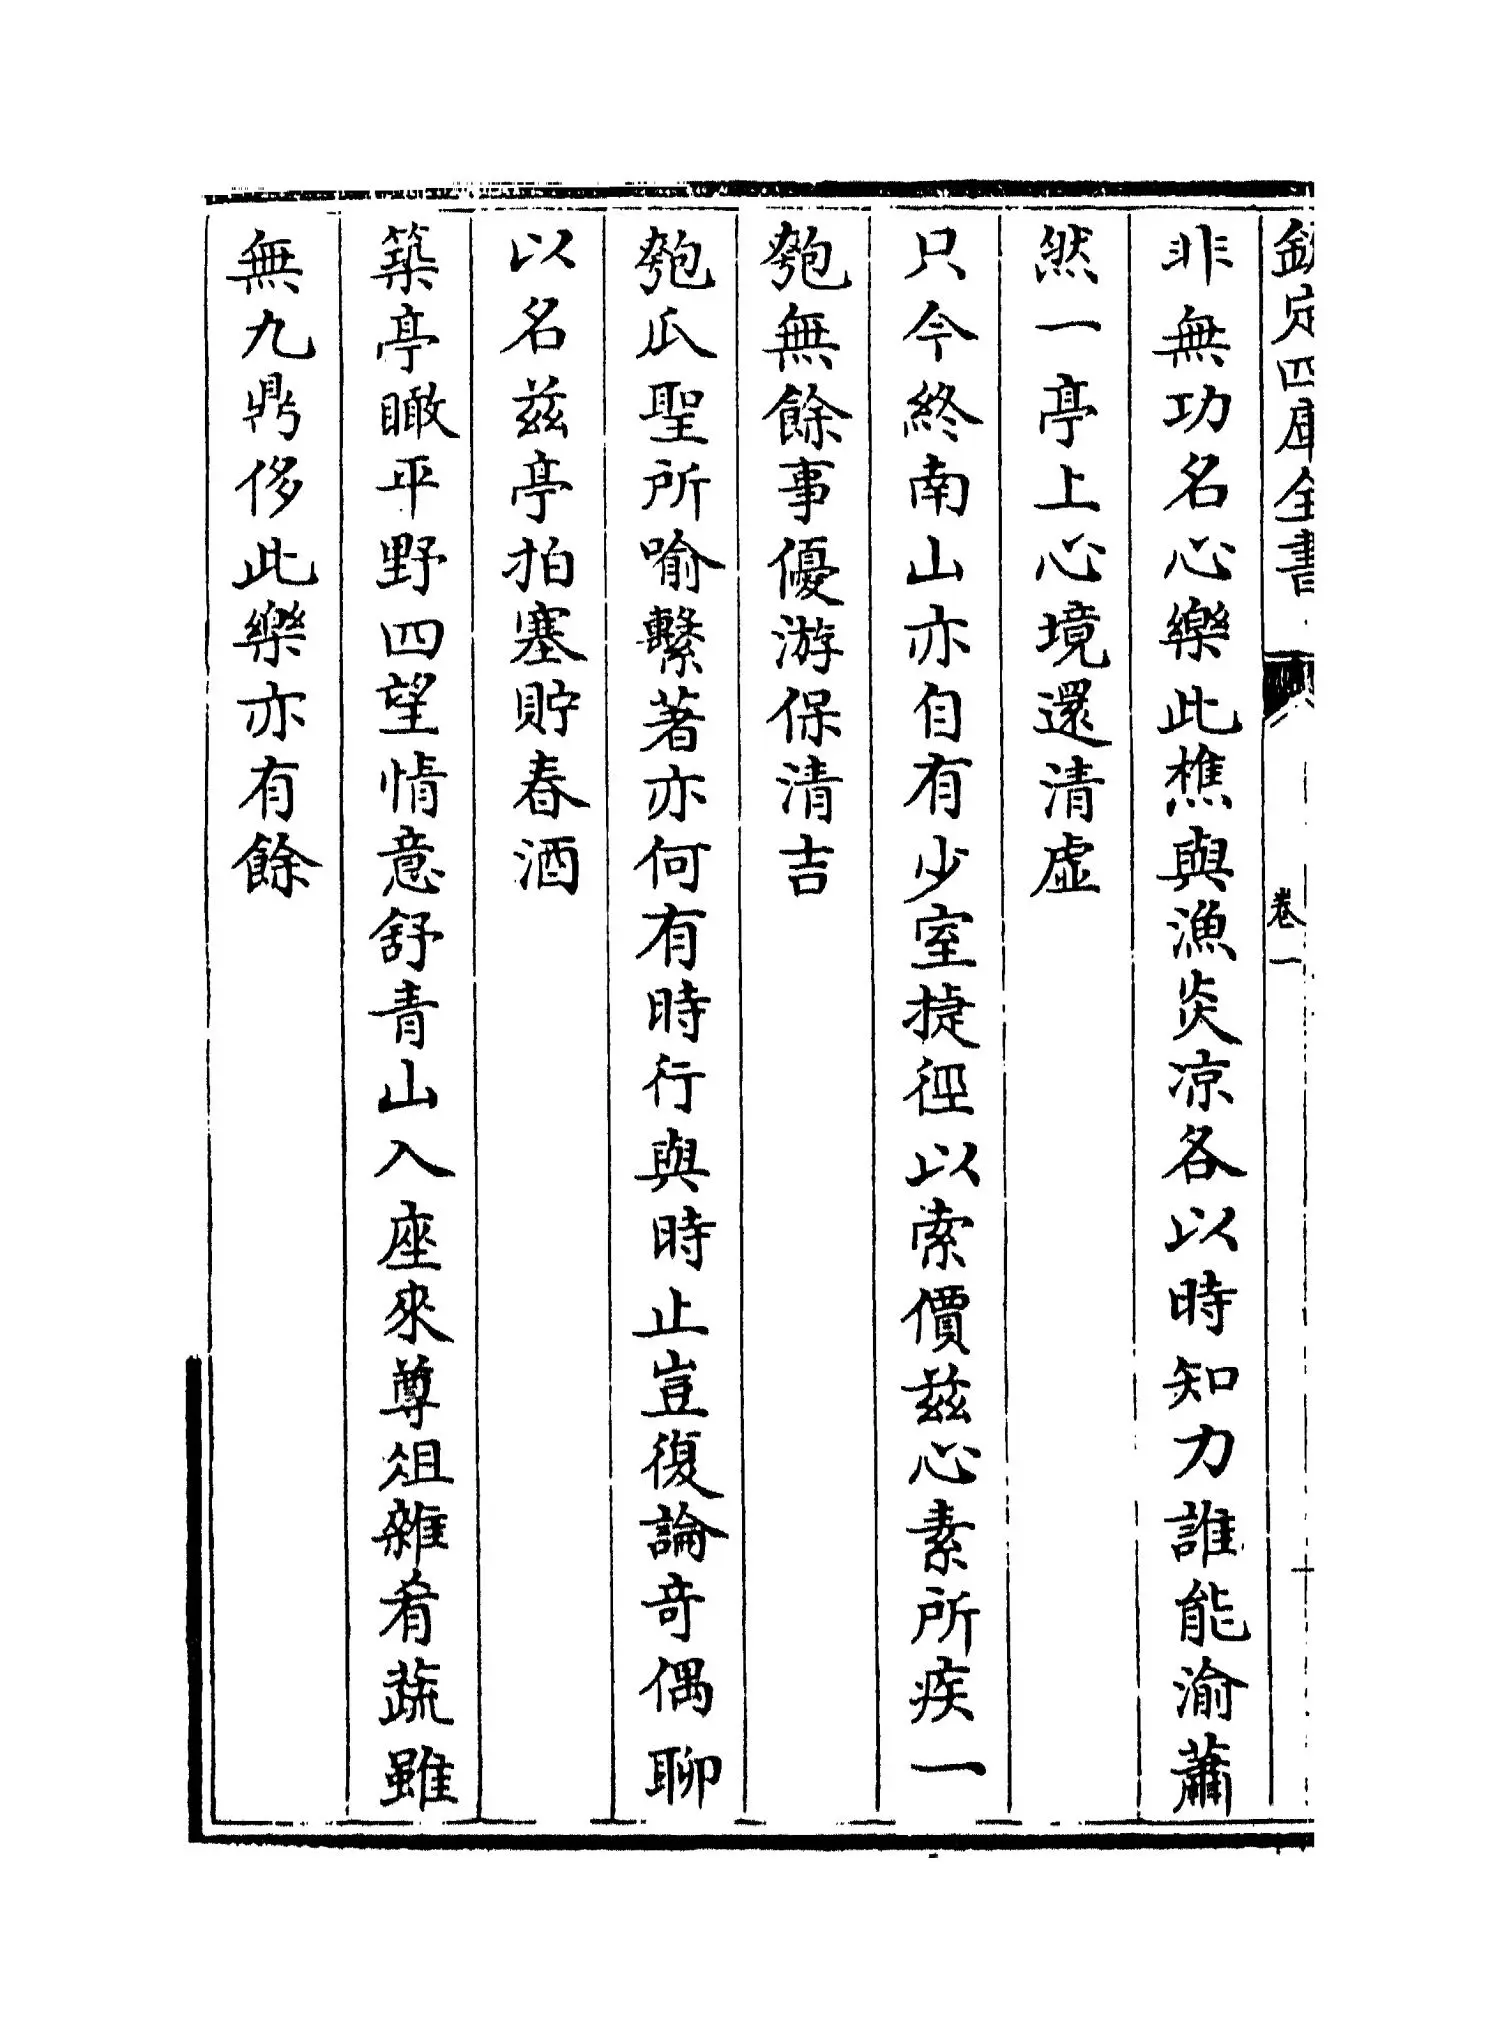 欽定四庫全書
卷一
非無功名心樂此樵與漁炎凉各以時知力誰能渝蕭
然一亭上心境還清虛
只今終南山亦自有少室捷徑以索價兹心素所疾一
匏無餘事優游保清吉
匏瓜聖所喻繫著亦何有時行與時止豈復論奇偶聊
以名兹亭拍塞貯春酒
築亭瞰平野四望情意舒青山入座來尊俎雜肴蔬雖
無九鼎侈此樂亦有餘